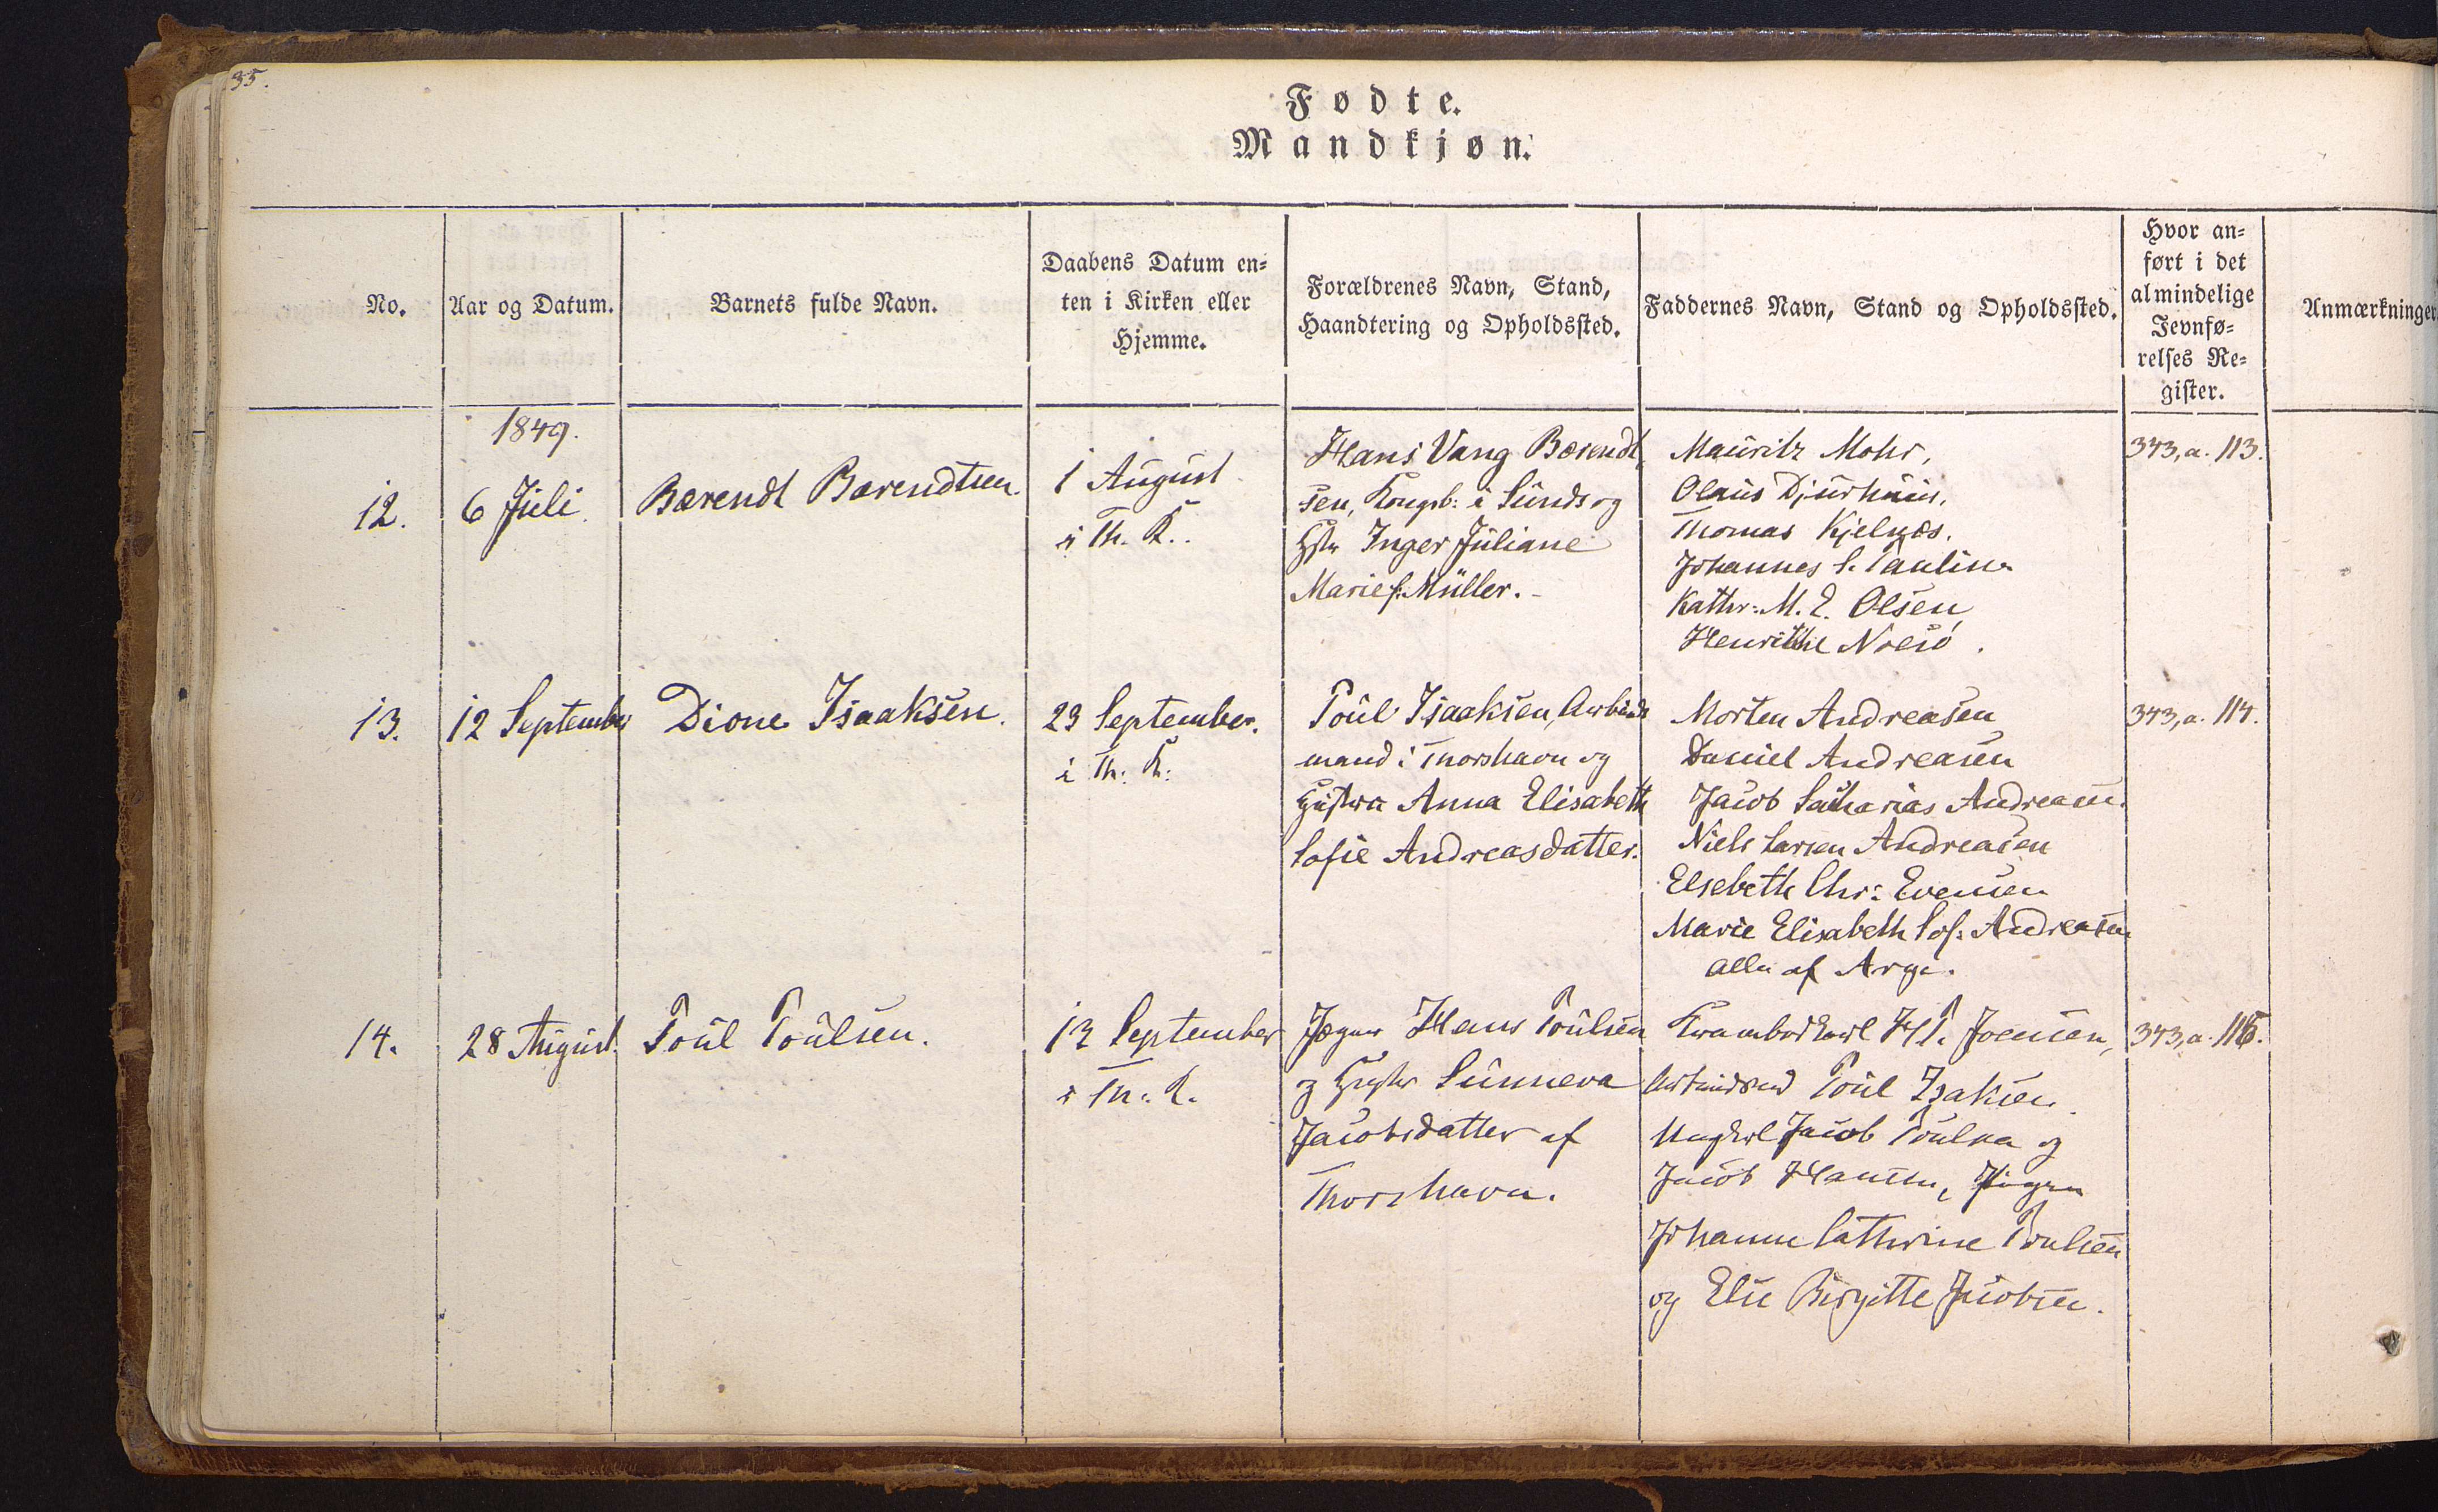 35.
Fødte.
Mandkjøn.
No.
Aar og Datum.
Barnets fulde Navn.
Daabens Datum en-
ten i Kirken eller
Hjemme.
Forældrenes Navn, Stand,
Haandtering og Opholdssted.
Faddernes Navn, Stand og Opholdssted.
Hvor an-
ført i det
almindelige
Jevnfø-
relses Re-
gister.
Anmærkninger
1849.
12.
6 Juli.
Barendt Barendtsen.
1 August
i Th. K.
Hans Vang Barendt
sen, Kongsb: i Sunds og
Hstr Inger Juliane
Marie f. Müller.
Mauritz Mohr,
Olaus Djurhuus,
Thomas Kjelnæs.
Johannes S. Paulin
Kathr: M. E. Olsen
Henriette Nolsö.
343, a. 113.
13.
12 September
Dione Isaaksen.
23 September.
i Th. K.
Poul Isaaksen, Arbeids
mand i Thorshavn og
Hustru Anna Elisabeth
Sofie Andreasdatter.
Morten Andreasen
Daniel Andreasen
Jacob Sacharias Andreasen.
Niels Larsen Andreasen
Elsebeth Chr: Evensen
Marie Elisabeth Sof: Andreasen
alle af Arge.
343, a. 114.
14.
28 August.
Poul Poulsen.
12 September
i Th. K.
Jæger Hans Poulsen
og Hustr Sunneva
Jacobsdatter af
Thorshavn.
Krambodkarl H P. Joensen,
Poul Isaksen
Ungkrl Jacob Poulsen og
Jacob Hansen, Pigen
Johanne Cathrine Poulsen
og Else Birgitte Jacobsen.
343, a. 115.